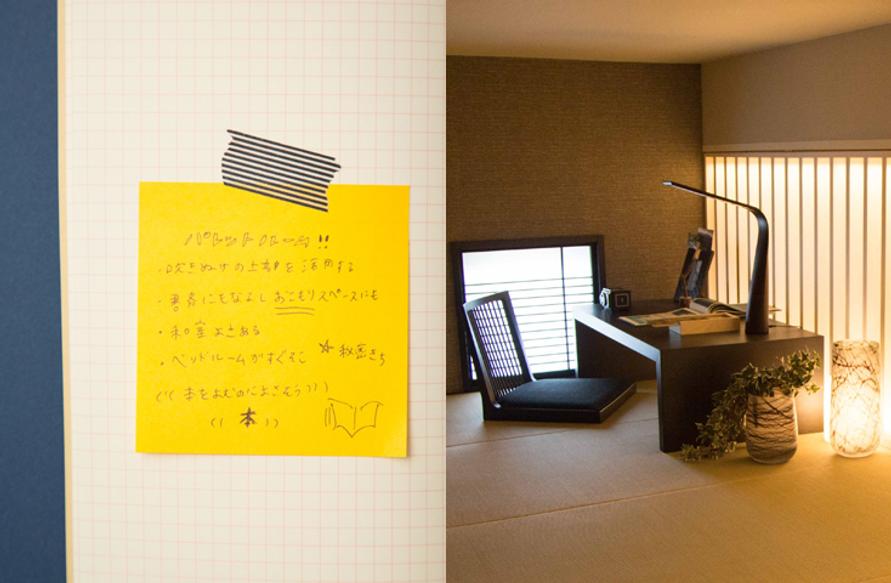 パレットルーム!!
・吹きぬけの上部を活用する
・書斎にもなるし おこもりスペースにも
・和室よさある
・ベッドルームがすぐそこ ☆秘密きち
(((本をよむのによさそう)))
((本))